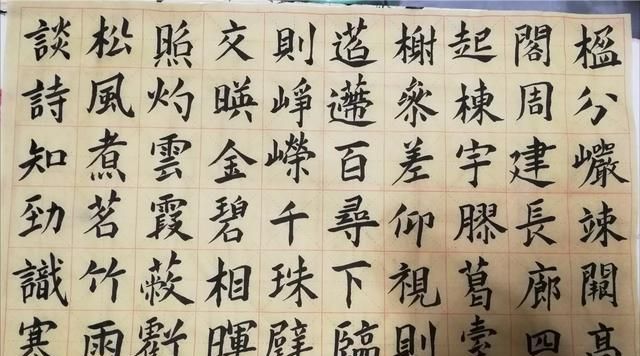 楹分巗竦闕高
閣周建長廊四
起棟宇膠葛臺
榭參差仰視則
迢遰百尋下臨
則崢嶸千珠璧
交暎金碧相暉
照灼雲霞蔽虧
松風煮茗竹雨
談詩知勁識寒